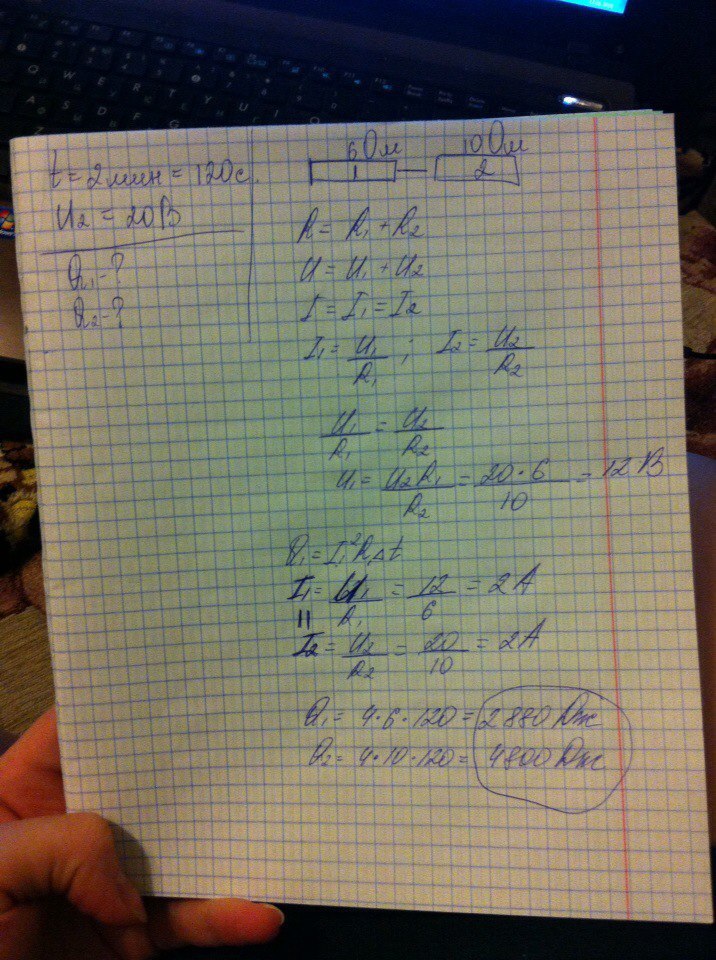 t = 2 мин = 120 с.
U₂ = 20 В
Q₁ - ?
Q₂ - ?
6 Ом 10 Ом
1 2
R = R₁ + R₂
U = U₁ + U₂
I = I₁ = I₂
I₁ = U₁/R₁ ; I₂ = U₂/R₂
U₁/R₁ = U₂/R₂
U₁ = U₂R₁/R₂ = 20·6/10 = 12 В
Q₁ = I₁²R₁Δt
I₁ = U₁/R₁ = 12/6 = 2 А
||
I₂ = U₂/R₂ = 20/10 = 2 А
Q₁ = 4·6·120 = 2880 Дж
Q₂ = 4·10·120 = 4800 Дж
Q W E R T Y U I
A S D F G